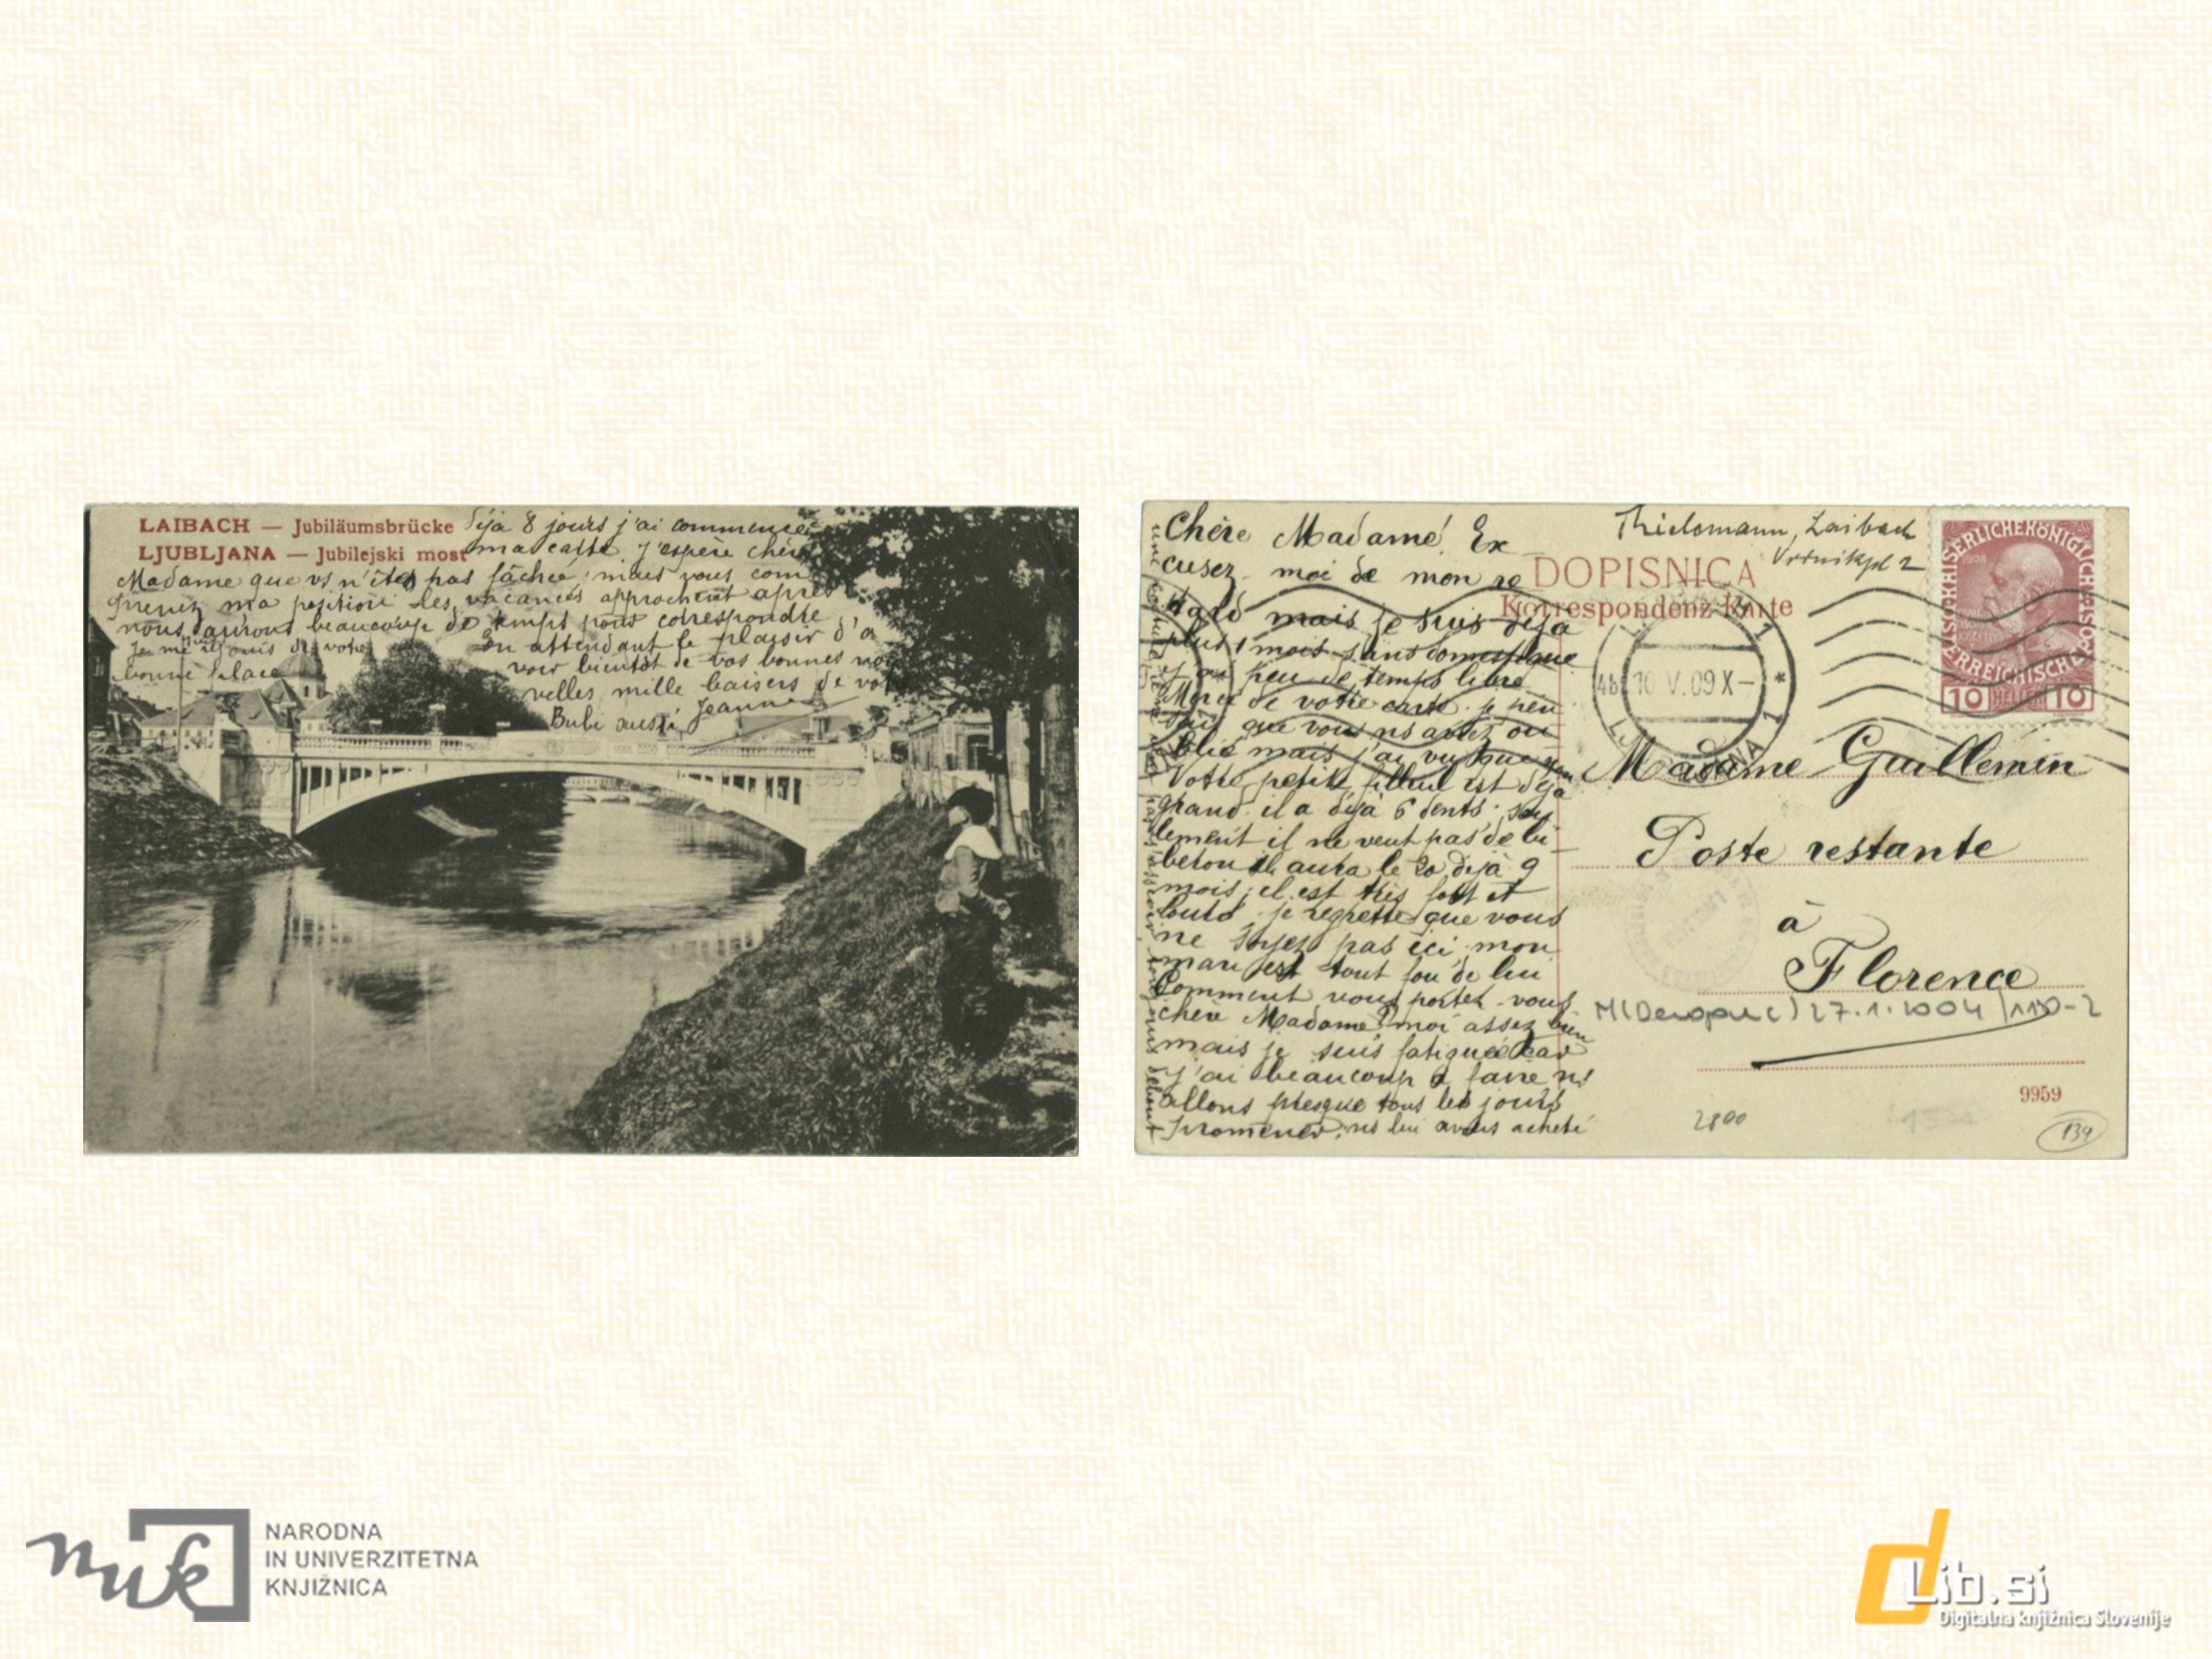 LAIBACH — Jubiläumsbrücke
LJUBLJANA — Jubilejski most
déjà 8 jours j'ai commencée
ma carte, j'espère chère
Madame que vs n'êtes pas fâchée, mais vous com
prenez ma position les vacances approchent après
nous aurons beaucoup de temps pour correspondre
Je me réjouis de votre
bonne place
En attendant le plaisir d'a
voir bientôt de vos bonnes nou
velles, mille baisers de votre
Jeanne
Bubi aussi
Chère Madame! Ex
cusez-moi de mon re
tard mais je suis déjà
plus 1 mois sans domestique
peu de temps libre
Merci de votre carte. je pen
sais que vous ns aviez ou
blié mais j'ai vu que non
Votre petit filleul est déjà
grand. il a déjà 6 dents. seu
lement il ne veut pas de bi
beron il aura le 20 déjà 9
mois; il est très fort et
lourd. je regrette que vous
ne soyez pas ici, mon
mari est tout fou de lui
Comment vous portez-vous
chère Madame? moi assez bien
mais je suis fatiguée car
j'ai beaucoup à faire ns
allons presque tous les jours
promener, ns lui avons acheté
Thielomann, Laibach
2
DOPISNICA
Korrespondenz-Karte
4b 10 V. 09 X–
LJUBLJANA 1
KAISERLICHEKÖNIGLICHE
ÖSTERREICHISCHE POST
1908
10 HELLER 10
Madame Guillemin
Poste restante
à
Florence
27.1.2004
9959
2800
134
nuk
NARODNA
IN UNIVERZITETNA
KNJIŽNICA
dLib.si
Digitalna knjižnica Slovenije